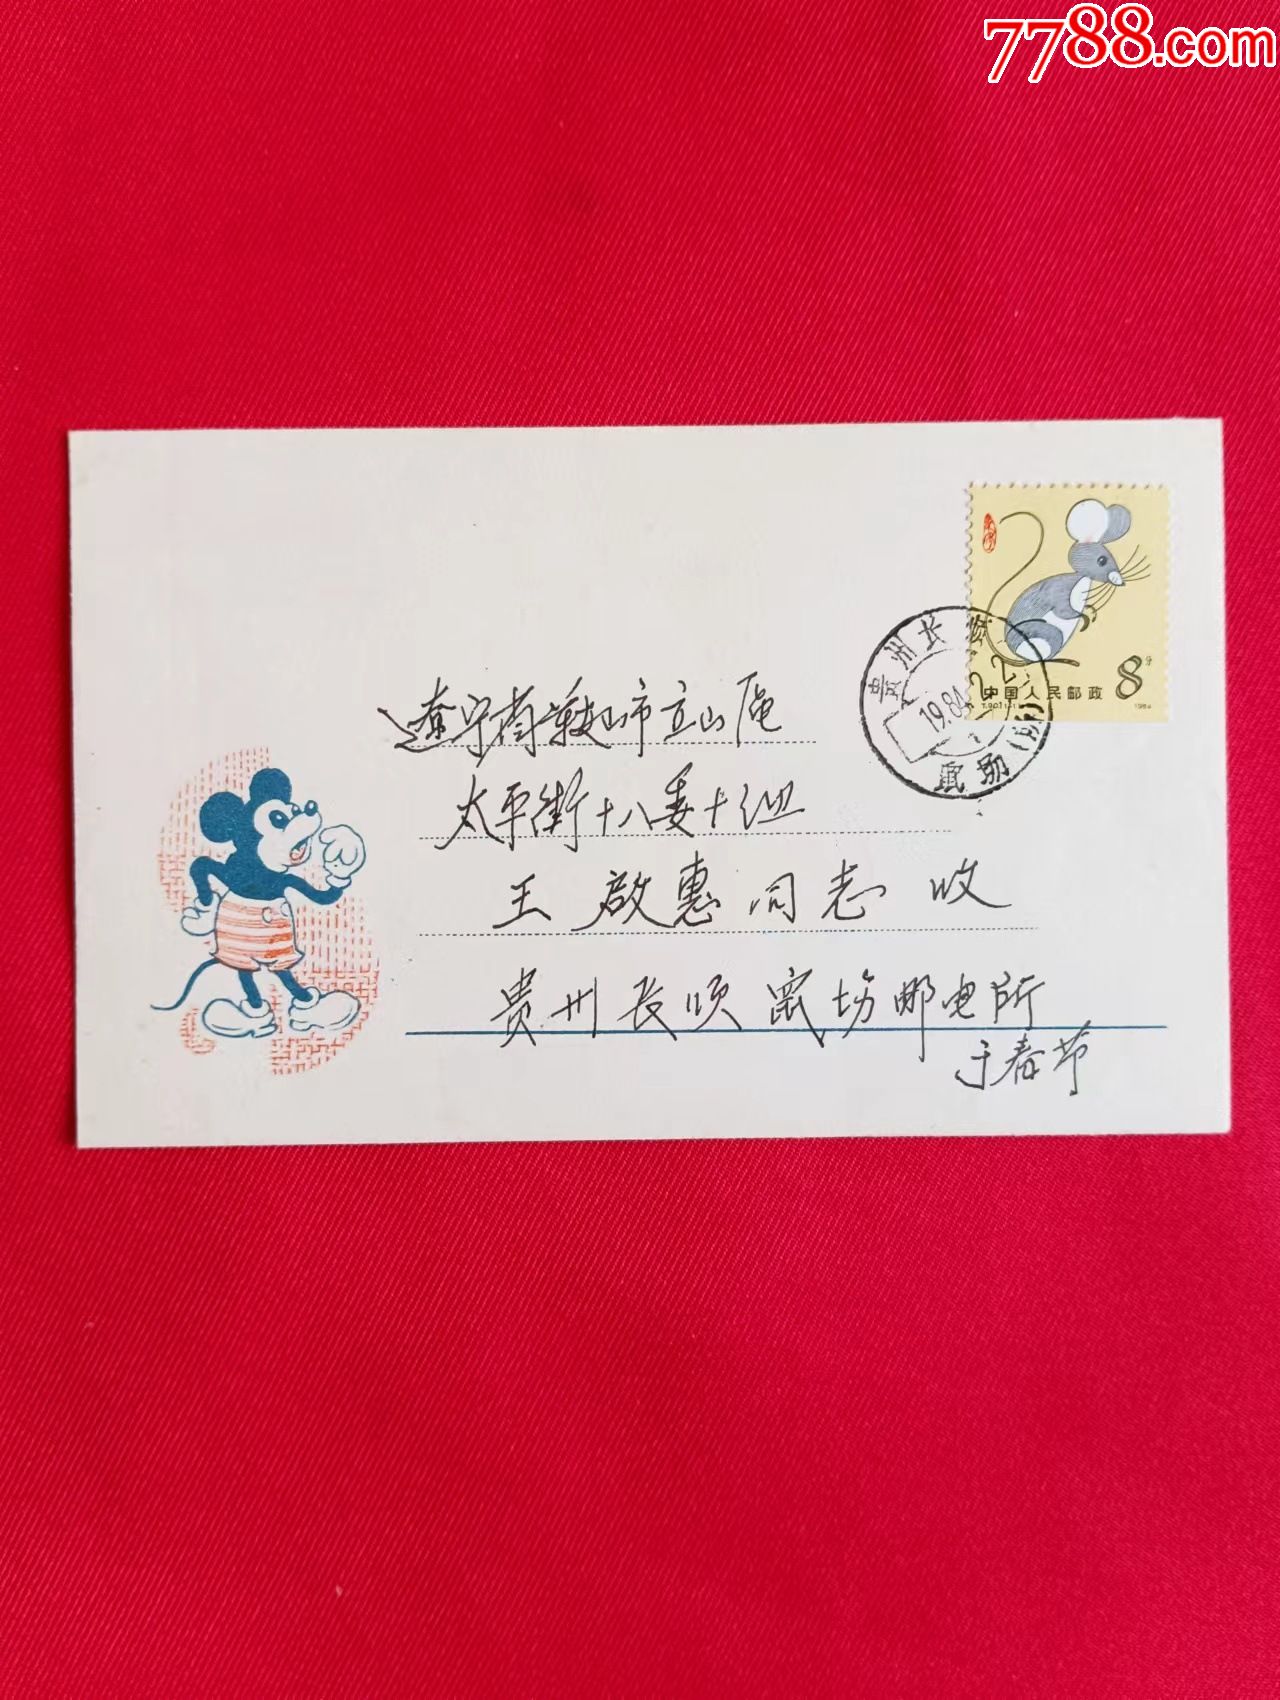 7788.com
中国人民邮政
8分
T.90.(1-1)
1984
贵州长顺
1984.2.2
鼠场(所)
辽宁省鞍山市立山区
太平街十八委十组
王啟惠同志收
贵州长顺鼠场邮电所
于春节